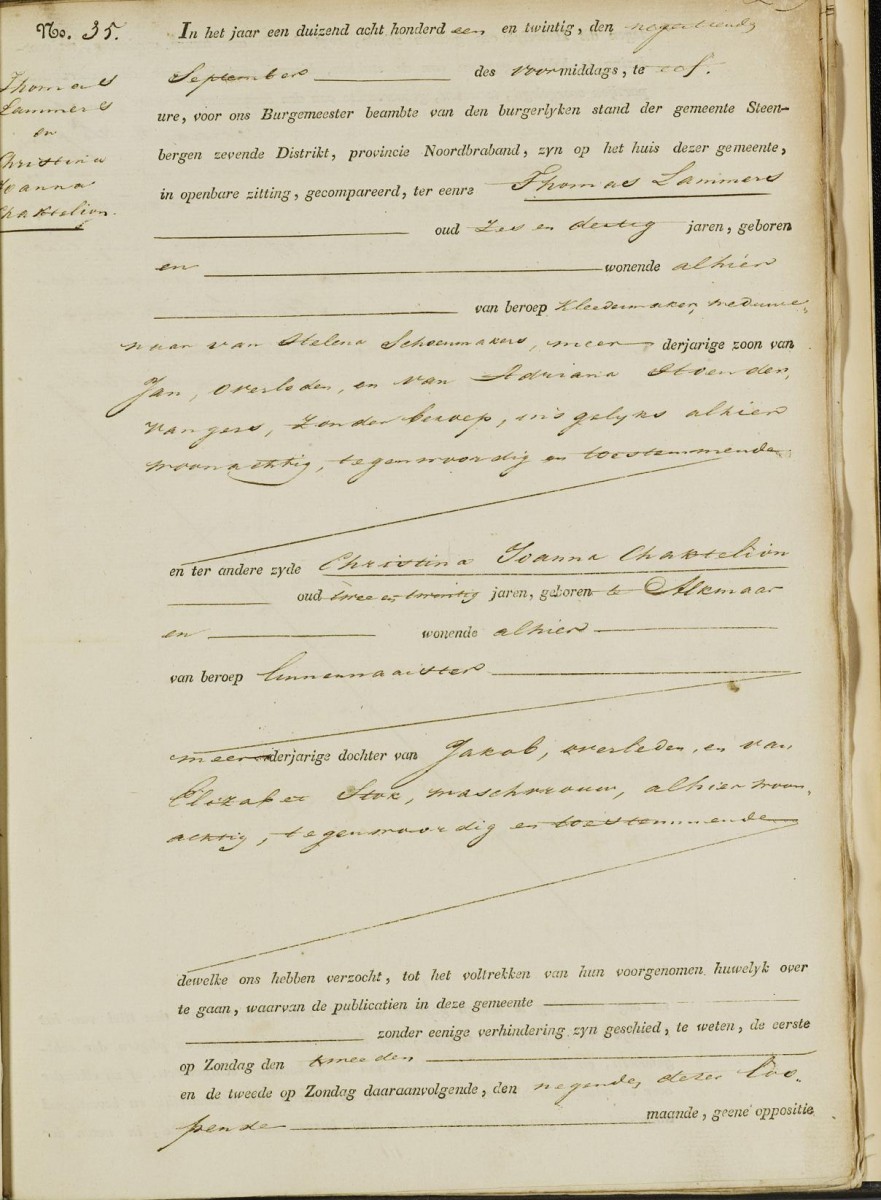 No. 35.
Thomas
Lammers
en
Christina
Joanna
Chakselion.
In het jaar een duizend acht honderd een en twintig, den negentiende
September des voormiddags, te elf
ure, voor ons Burgemeester beambte van den burgerlyken stand der gemeente Steen-
bergen zevende Distrikt, provincie Noordbraband, zyn op het huis dezer gemeente,
in openbare zitting, gecompareerd, ter eenre Thomas Lammers
oud zes en dertig jaren, geboren
en wonende alhier
van beroep kleedermaker, weduwe-
naar van Helena Schoenmakers, meer derjarige zoon van
Jan, overleden, en van Adriana Hoender,
vangers, zonder beroep, ins gelyks alhier
woonachtig, tegenwoordig en toestemmende
en ter andere zyde Christina Joanna Chakselion
oud twee en twintig jaren, geboren te Alkmaar
en wonende alhier
van beroep linnennaaister
meerderjarige dochter van Jakob, overleden, en van
Elizabet Stok, waschvrouw, alhier woon-
achtig, tegenwoordig en toestemmende
dewelke ons hebben verzocht, tot het voltrekken van hun voorgenomen huwelyk over
te gaan, waarvan de publicatien in deze gemeente
zonder eenige verhindering zyn geschied, te weten, de eerste
op Zondag den tweeden
en de tweede op Zondag daaraanvolgende, den negende, dezer loo-
pende maande, geene oppositie